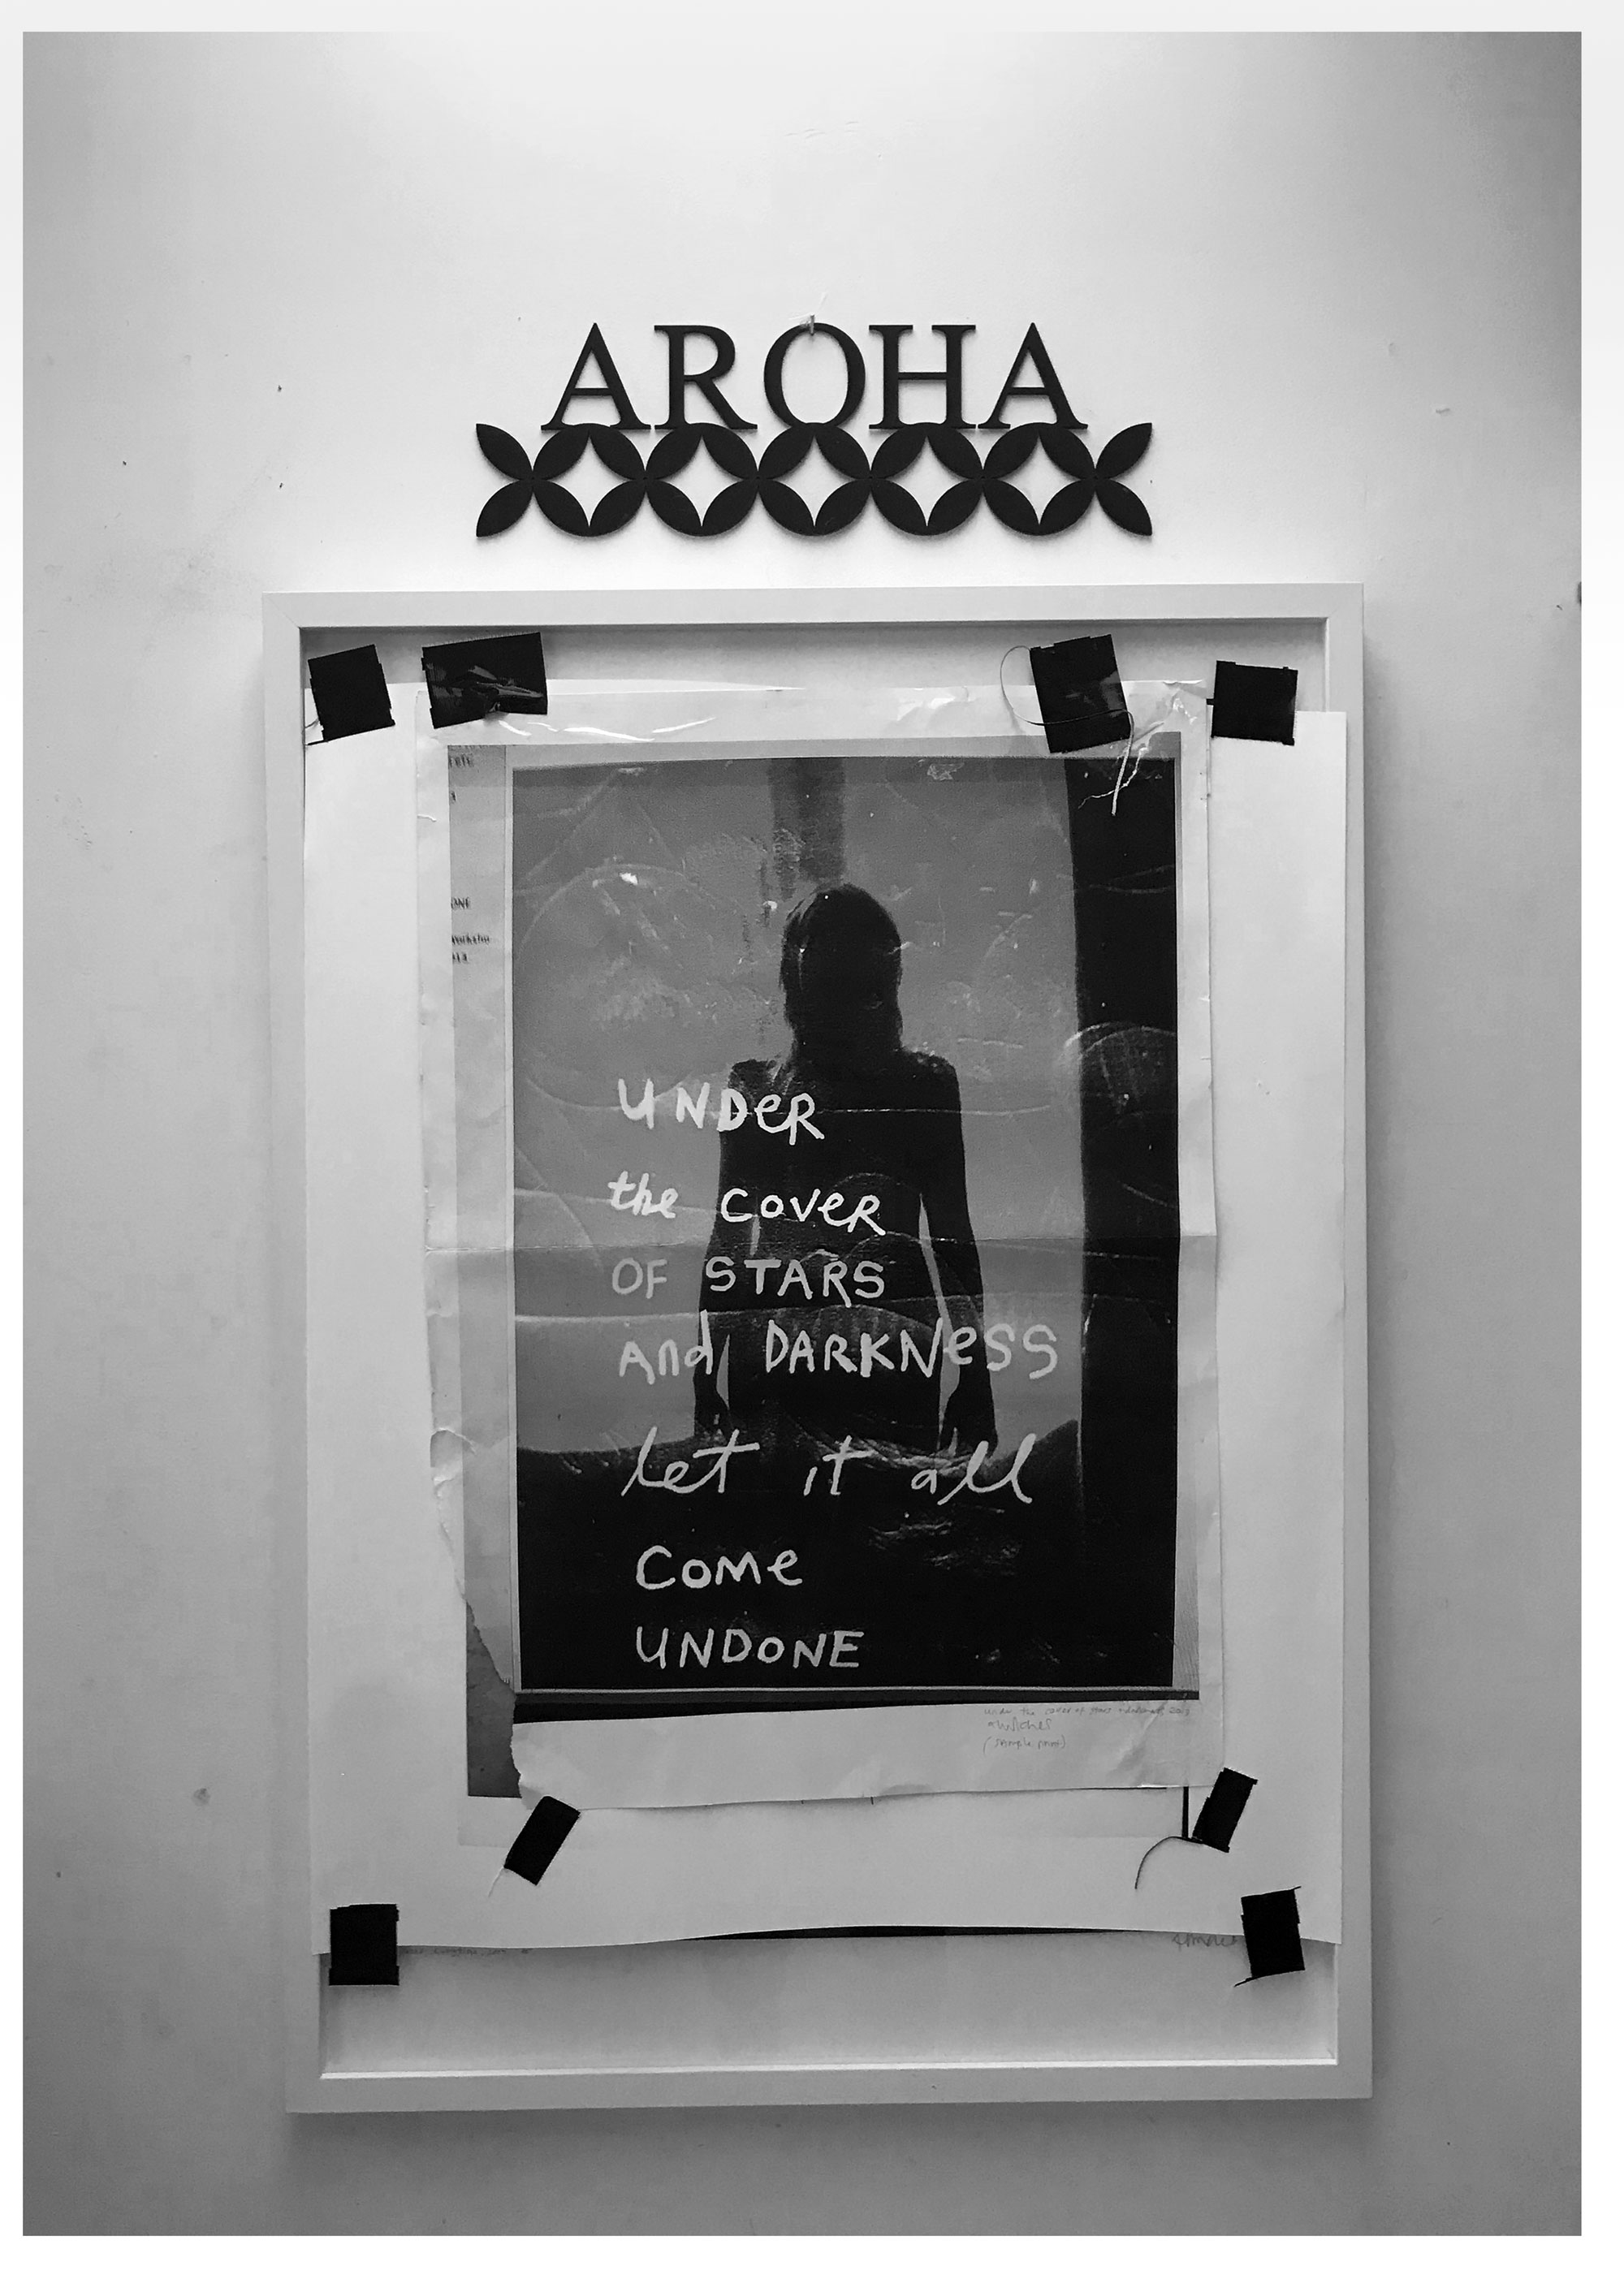 AROHA
ONE
UNDeR
the CoveR
OF STARS
And DARKNeSS
let it all
Come
UNDONE
under the cover of stars + darkness, 2013
(sample print)